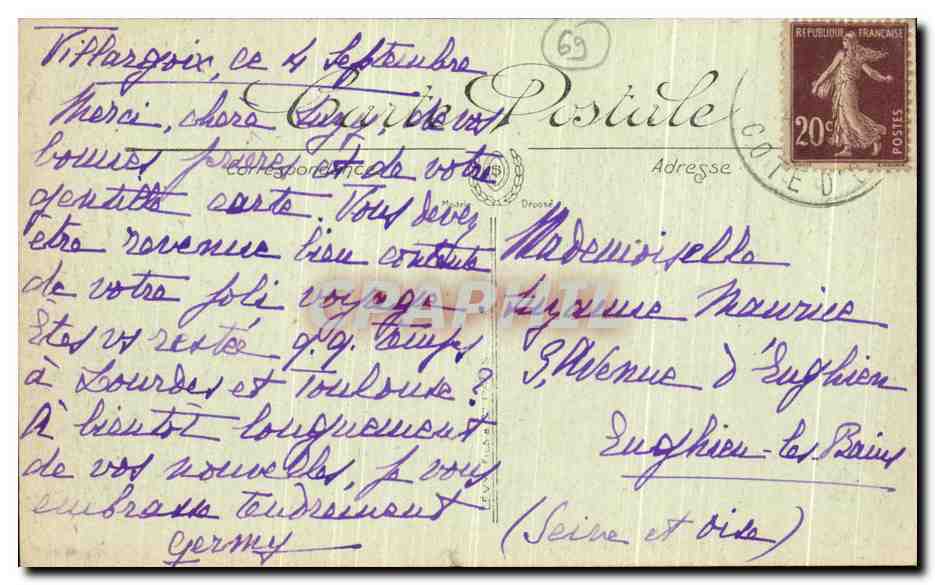 69
RÉPUBLIQUE FRANÇAISE
20c
POSTES
COTE D'
Carte Postale
Correspondance
Adresse
Modèle Déposé
Villargoix, ce 4 Septembre
Merci, chère Suzy, de vos
bonnes prières et de votre
gentille carte. Vous devez
être revenue bien contente
de votre joli voyage.
Etes vs restée q.q. temps
à Lourdes et Toulouse ?
A bientôt longuement
de vos nouvelles, je vous
embrasse tendrement
Germy
Mademoiselle
Suzanne Maurice
3, Avenue d'Enghien
Enghien-les-Bains
(Seine et Oise)
CPAPHIL